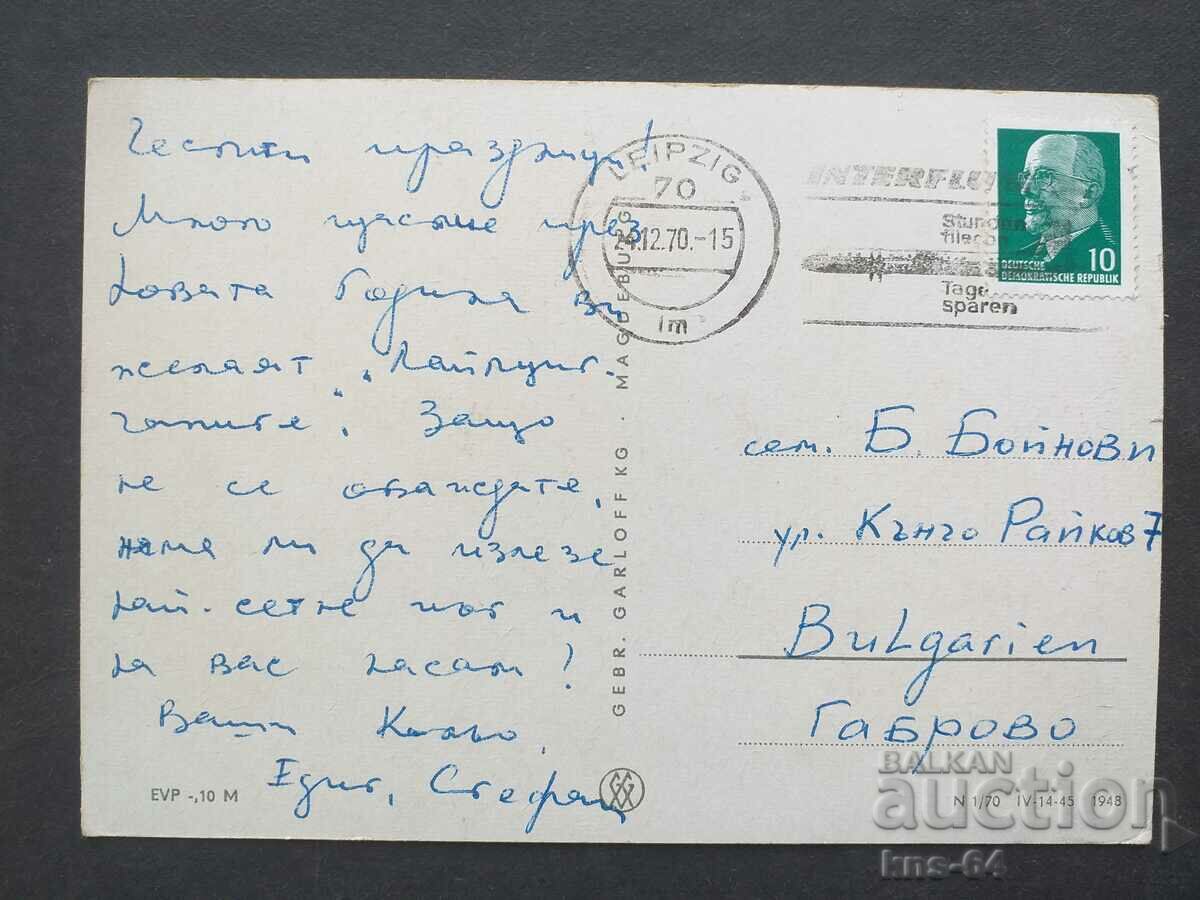 Честити празници!
Много щастие през
Новата Година ви
желаят „Лайпциг-
чаните“. Защо
не се обаждате,
няма ли да излезе
най-сетне път и
на вас насам?
Ваши Кольо,
Едит, Стефан
EVP -,10 M
GEBR. GARLOFF KG · MAGDEBURG
LEIPZIG
70
.12.70.-15
im
INTERFLU
Stunden
Tage
sparen
10
DEUTSCHE
DEMOKRATISCHE REPUBLIK
сем. Б. Бойнови
ул. Кънчо Райков 7
Bulgarien
Габрово
N 1/70 IV-14-45 1948
BALKAN
auction
kns-64